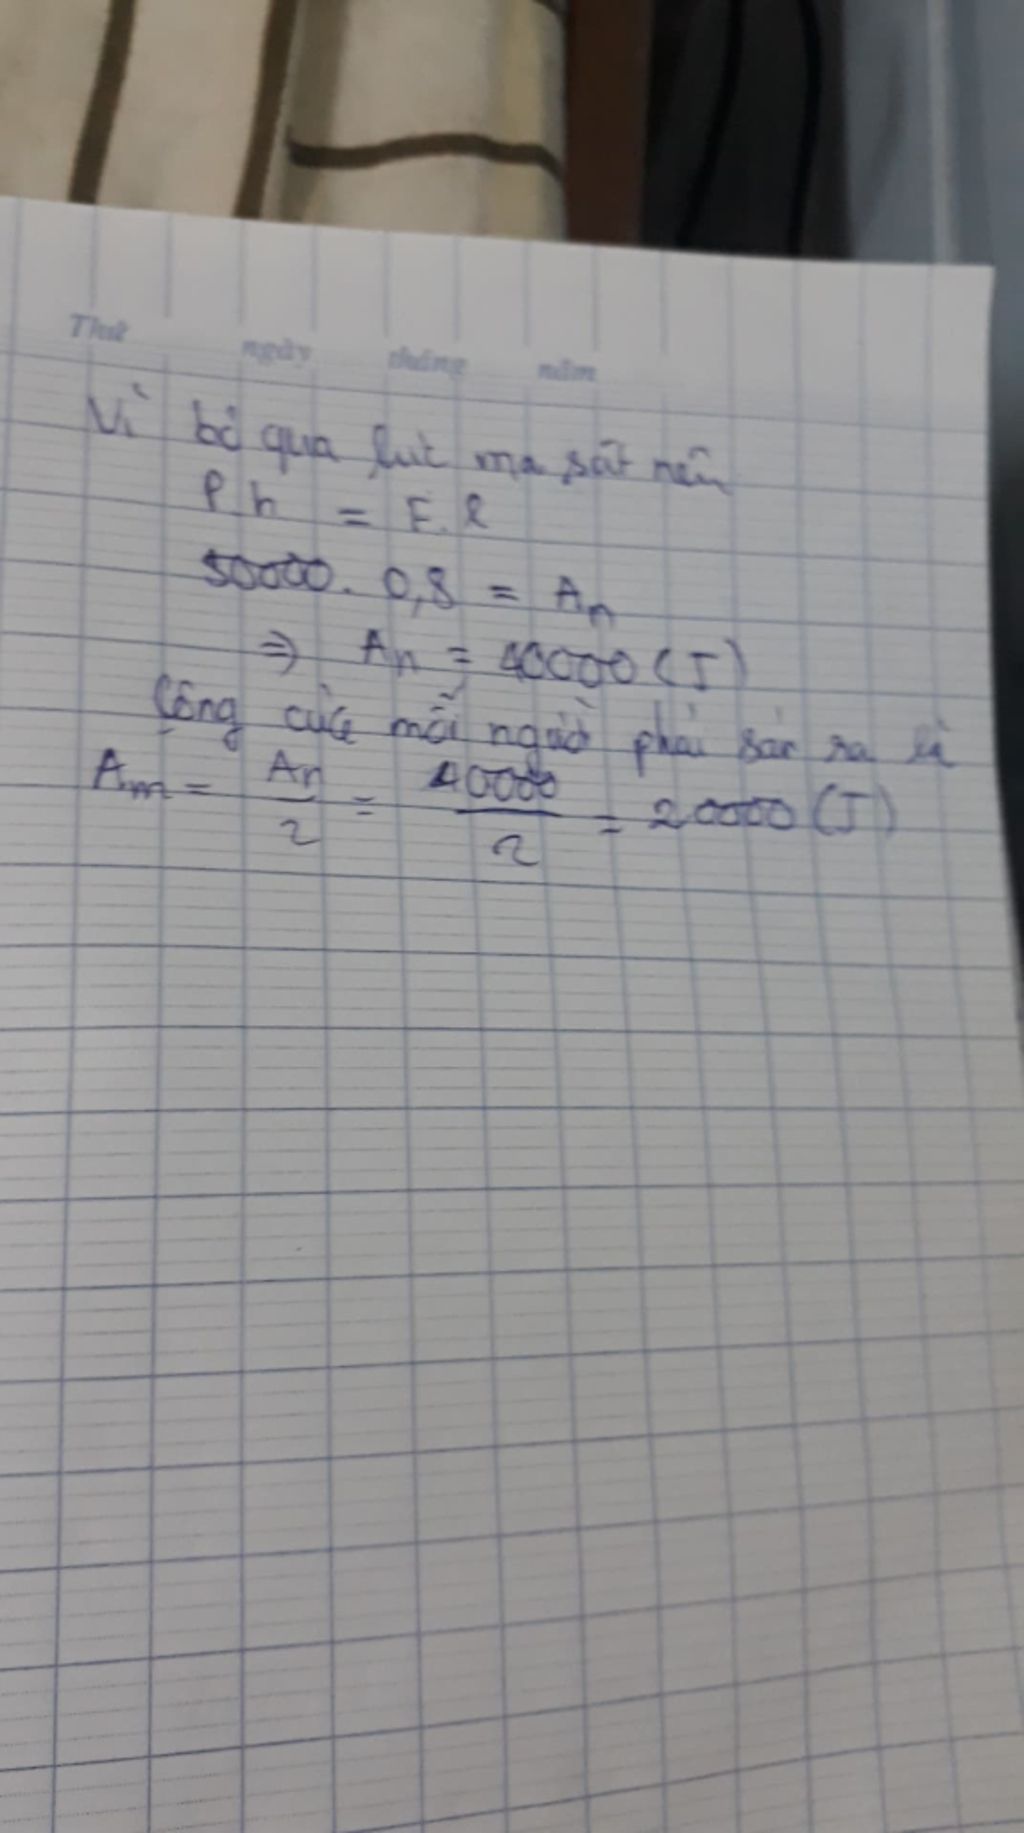 Thứ ngày tháng năm
Vì bỏ qua lực ma sát nên
P.h = F.l
50000. 0,8 = An
⇒ An = 40000 (J)
Công của mỗi người phải sản ra là
Am = An/2 = 40000/2 = 20000 (J)